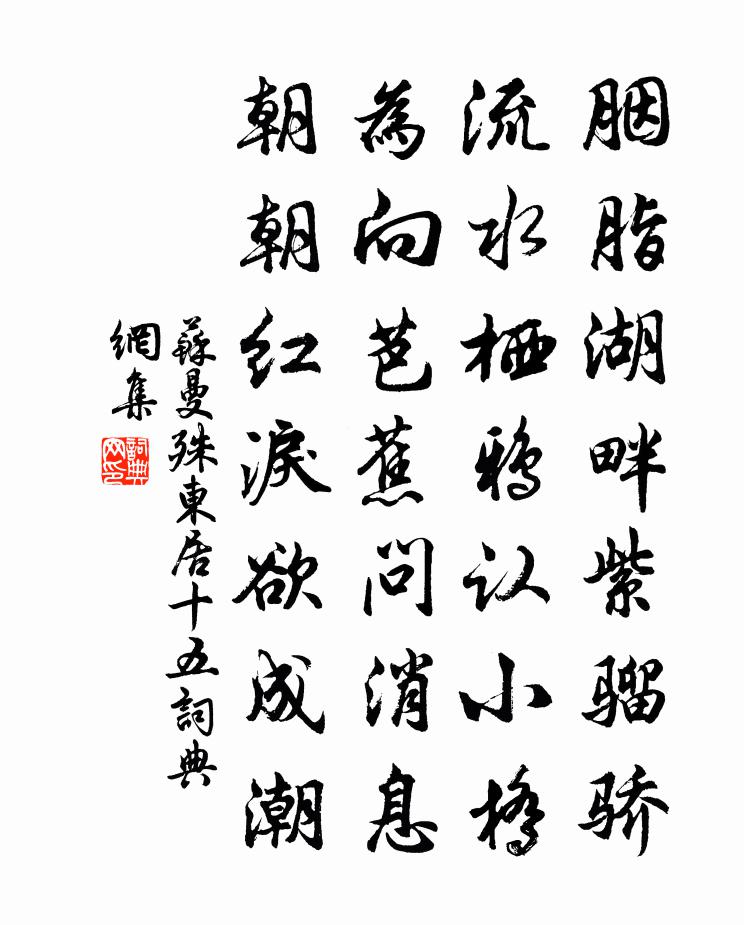 胭脂湖畔紫骝骄
流水栖鸦认小橋
為向芭蕉问消息
朝朝红淚欲成潮
蘇曼殊東居十五詞典
網集
詞典網印